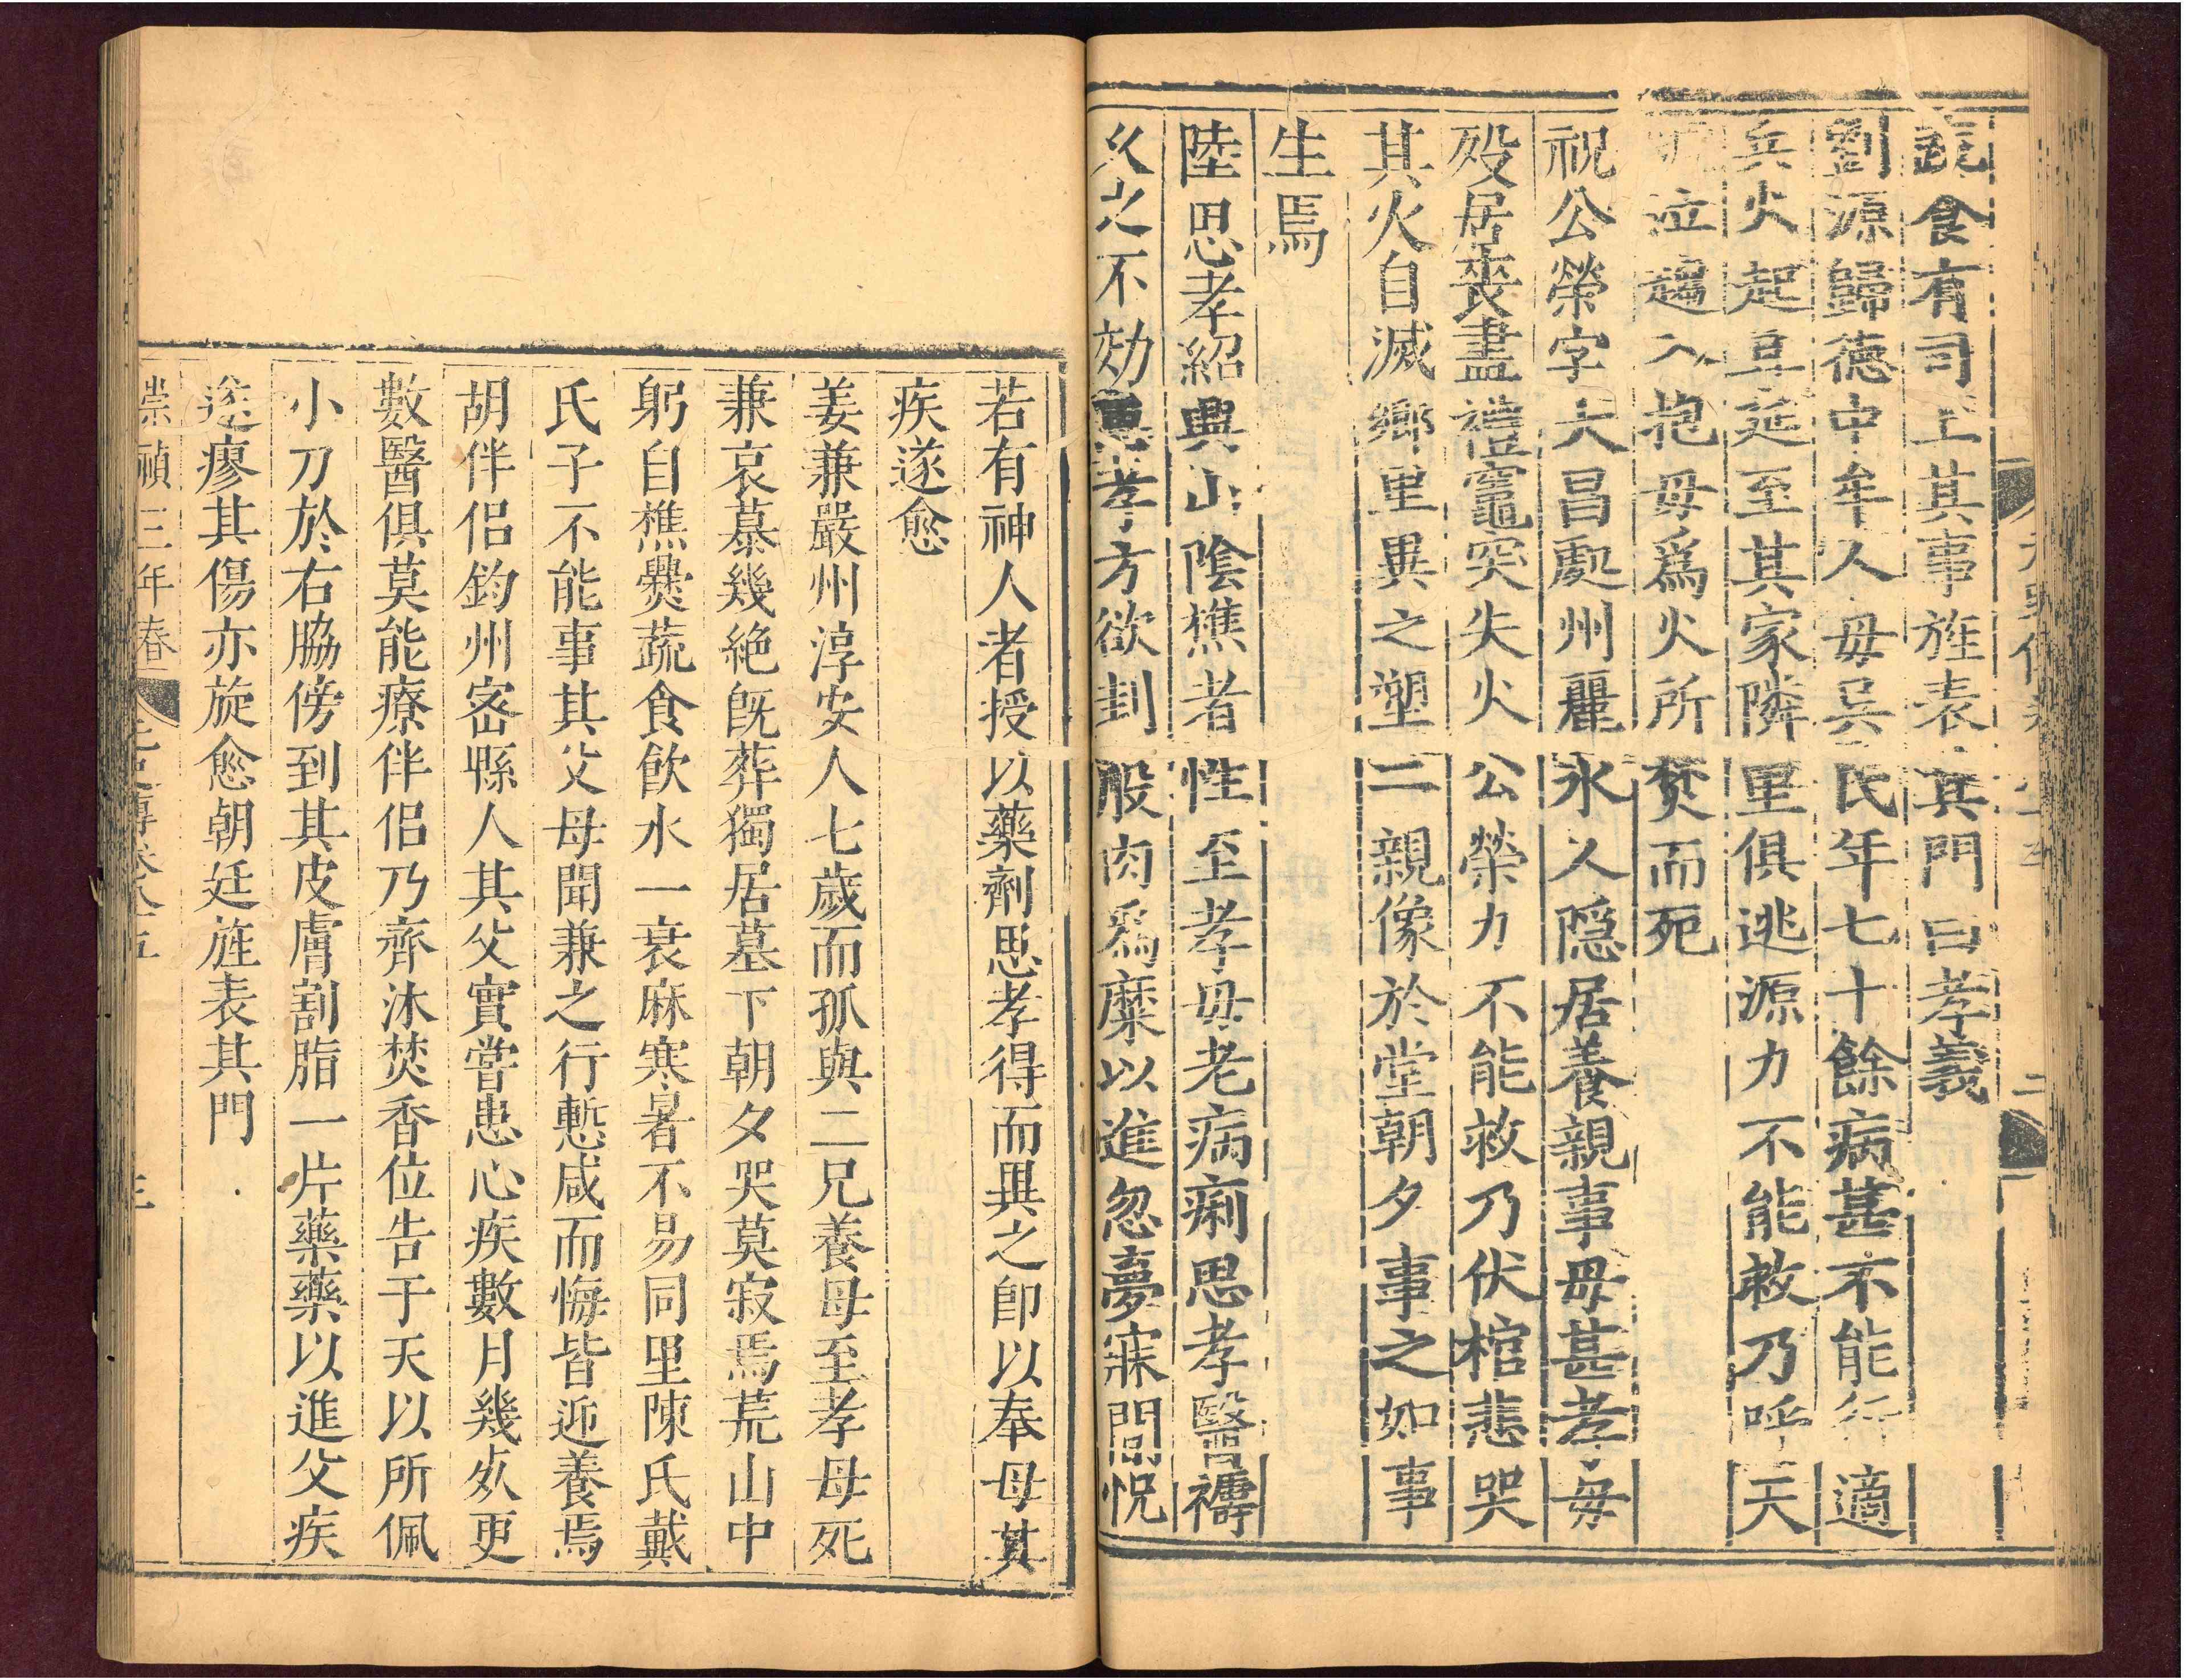 蔬食有司上其事旌表其門曰孝義
劉源歸德中牟人母吳氏年七十餘病甚不能行適
兵火起且延至其家隣里俱逃源力不能救乃呼天
泣趨入抱母爲火所焚而死
祝公榮字大昌處州麗水人隱居養親事母甚孝母
殁居喪盡禮竈突失火公榮力不能救乃伏棺悲哭
其火自滅鄉里異之塑二親像於堂朝夕事之如事
生焉
陸思孝紹興山陰樵者性至孝母老病痢思孝醫禱
久之不効思孝方欲刲股肉爲糜以進忽夢寐間恍
若有神人者授以藥劑思孝得而異之卽以奉母其
疾遂愈
姜兼嚴州淳安人七歲而孤與二兄養母至孝母死
兼哀慕幾絶旣葬獨居墓下朝夕哭莫寂焉荒山中
躬自樵爨蔬食飮水一衰麻寒暑不易同里陳氏戴
氏子不能事其父母聞兼之行慙感而悔皆迎養焉
胡伴侶鈞州密縣人其父實嘗患心疾數月幾死更
數醫俱莫能療伴侶乃齊沐焚香位告于天以所佩
小刀於右脇傍到其皮膚割脂一片藥藥以進父疾
遂瘳其傷亦旋愈朝廷旌表其門
崇禎三年春 元史傳卷八十五 三